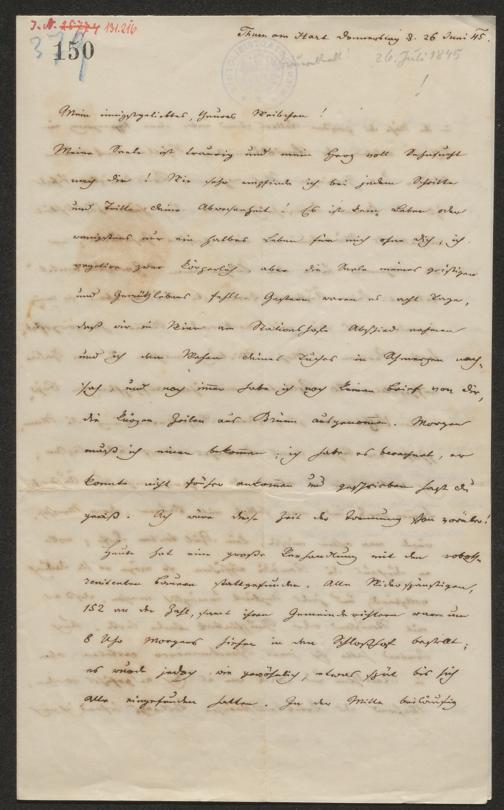 J. N. 25774 131.216
150
Thurn am Hart Donnerstag d. 26 Juni 45.
26. Juli 1845
!
Mein innigstgeliebtes, theures Weibchen!
Meine Seele ist traurig und mein Herz voll Sehnsucht
nach dir! Wie sehr empfinde ich bei jedem Schritte
und Tritte deine Abwesenheit! Es ist kein Leben oder
wenigstens nur ein halbes Leben für mich ohne dich, ich
vegetire zwar körperlich, aber die Seele meines geistigen
und Gemüthslebens fehlt. Gestern waren es acht Tage,
daß wir in Wien am Nationalhofe Abschied nahmen
und ich dem Wehen deines Tuches in Schmerzen nach-
sah und noch immer habe ich noch keinen Brief von dir,
die kurzen Zeilen aus Brünn ausgenommen. Morgen
muß ich einen bekommen; ich habe es berechnet, er
konnte nicht früher ankommen und geschrieben hast du
gewiß. Ach wäre diese Zeit der Trennung schon vorüber!
Heute hat eine große Verhandlung mit den roboth-
renitenten Bauern stattgefunden. Alle Widerspänstigen,
152 an der Zahl, samt ihren Gemeinderichtern waren um
8 Uhr Morgens hieher in den Schloßhof bestellt;
es wurde jedoch wie gewöhnlich, etwas spät bis sich
Alle eingefunden hatten. In der Mitte beiläufig